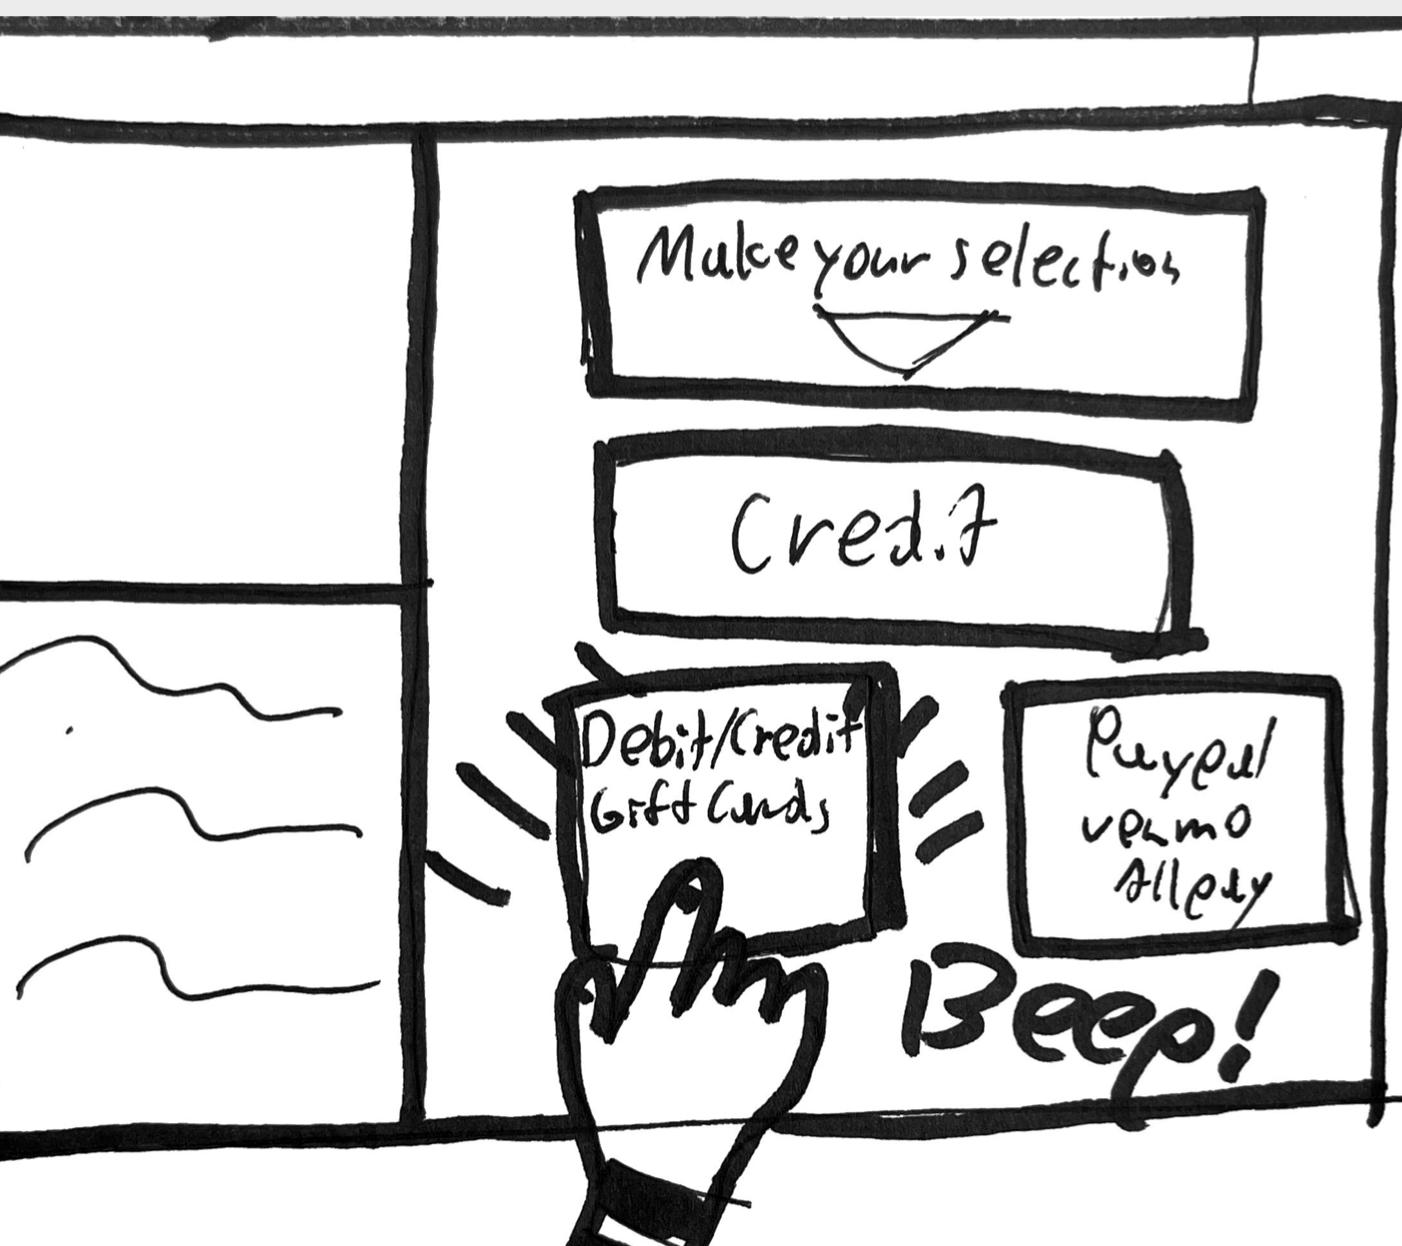 Make your selection
Credit
Debit/Credit
Gift Cards
Paypal
venmo
Allpay
Beep!